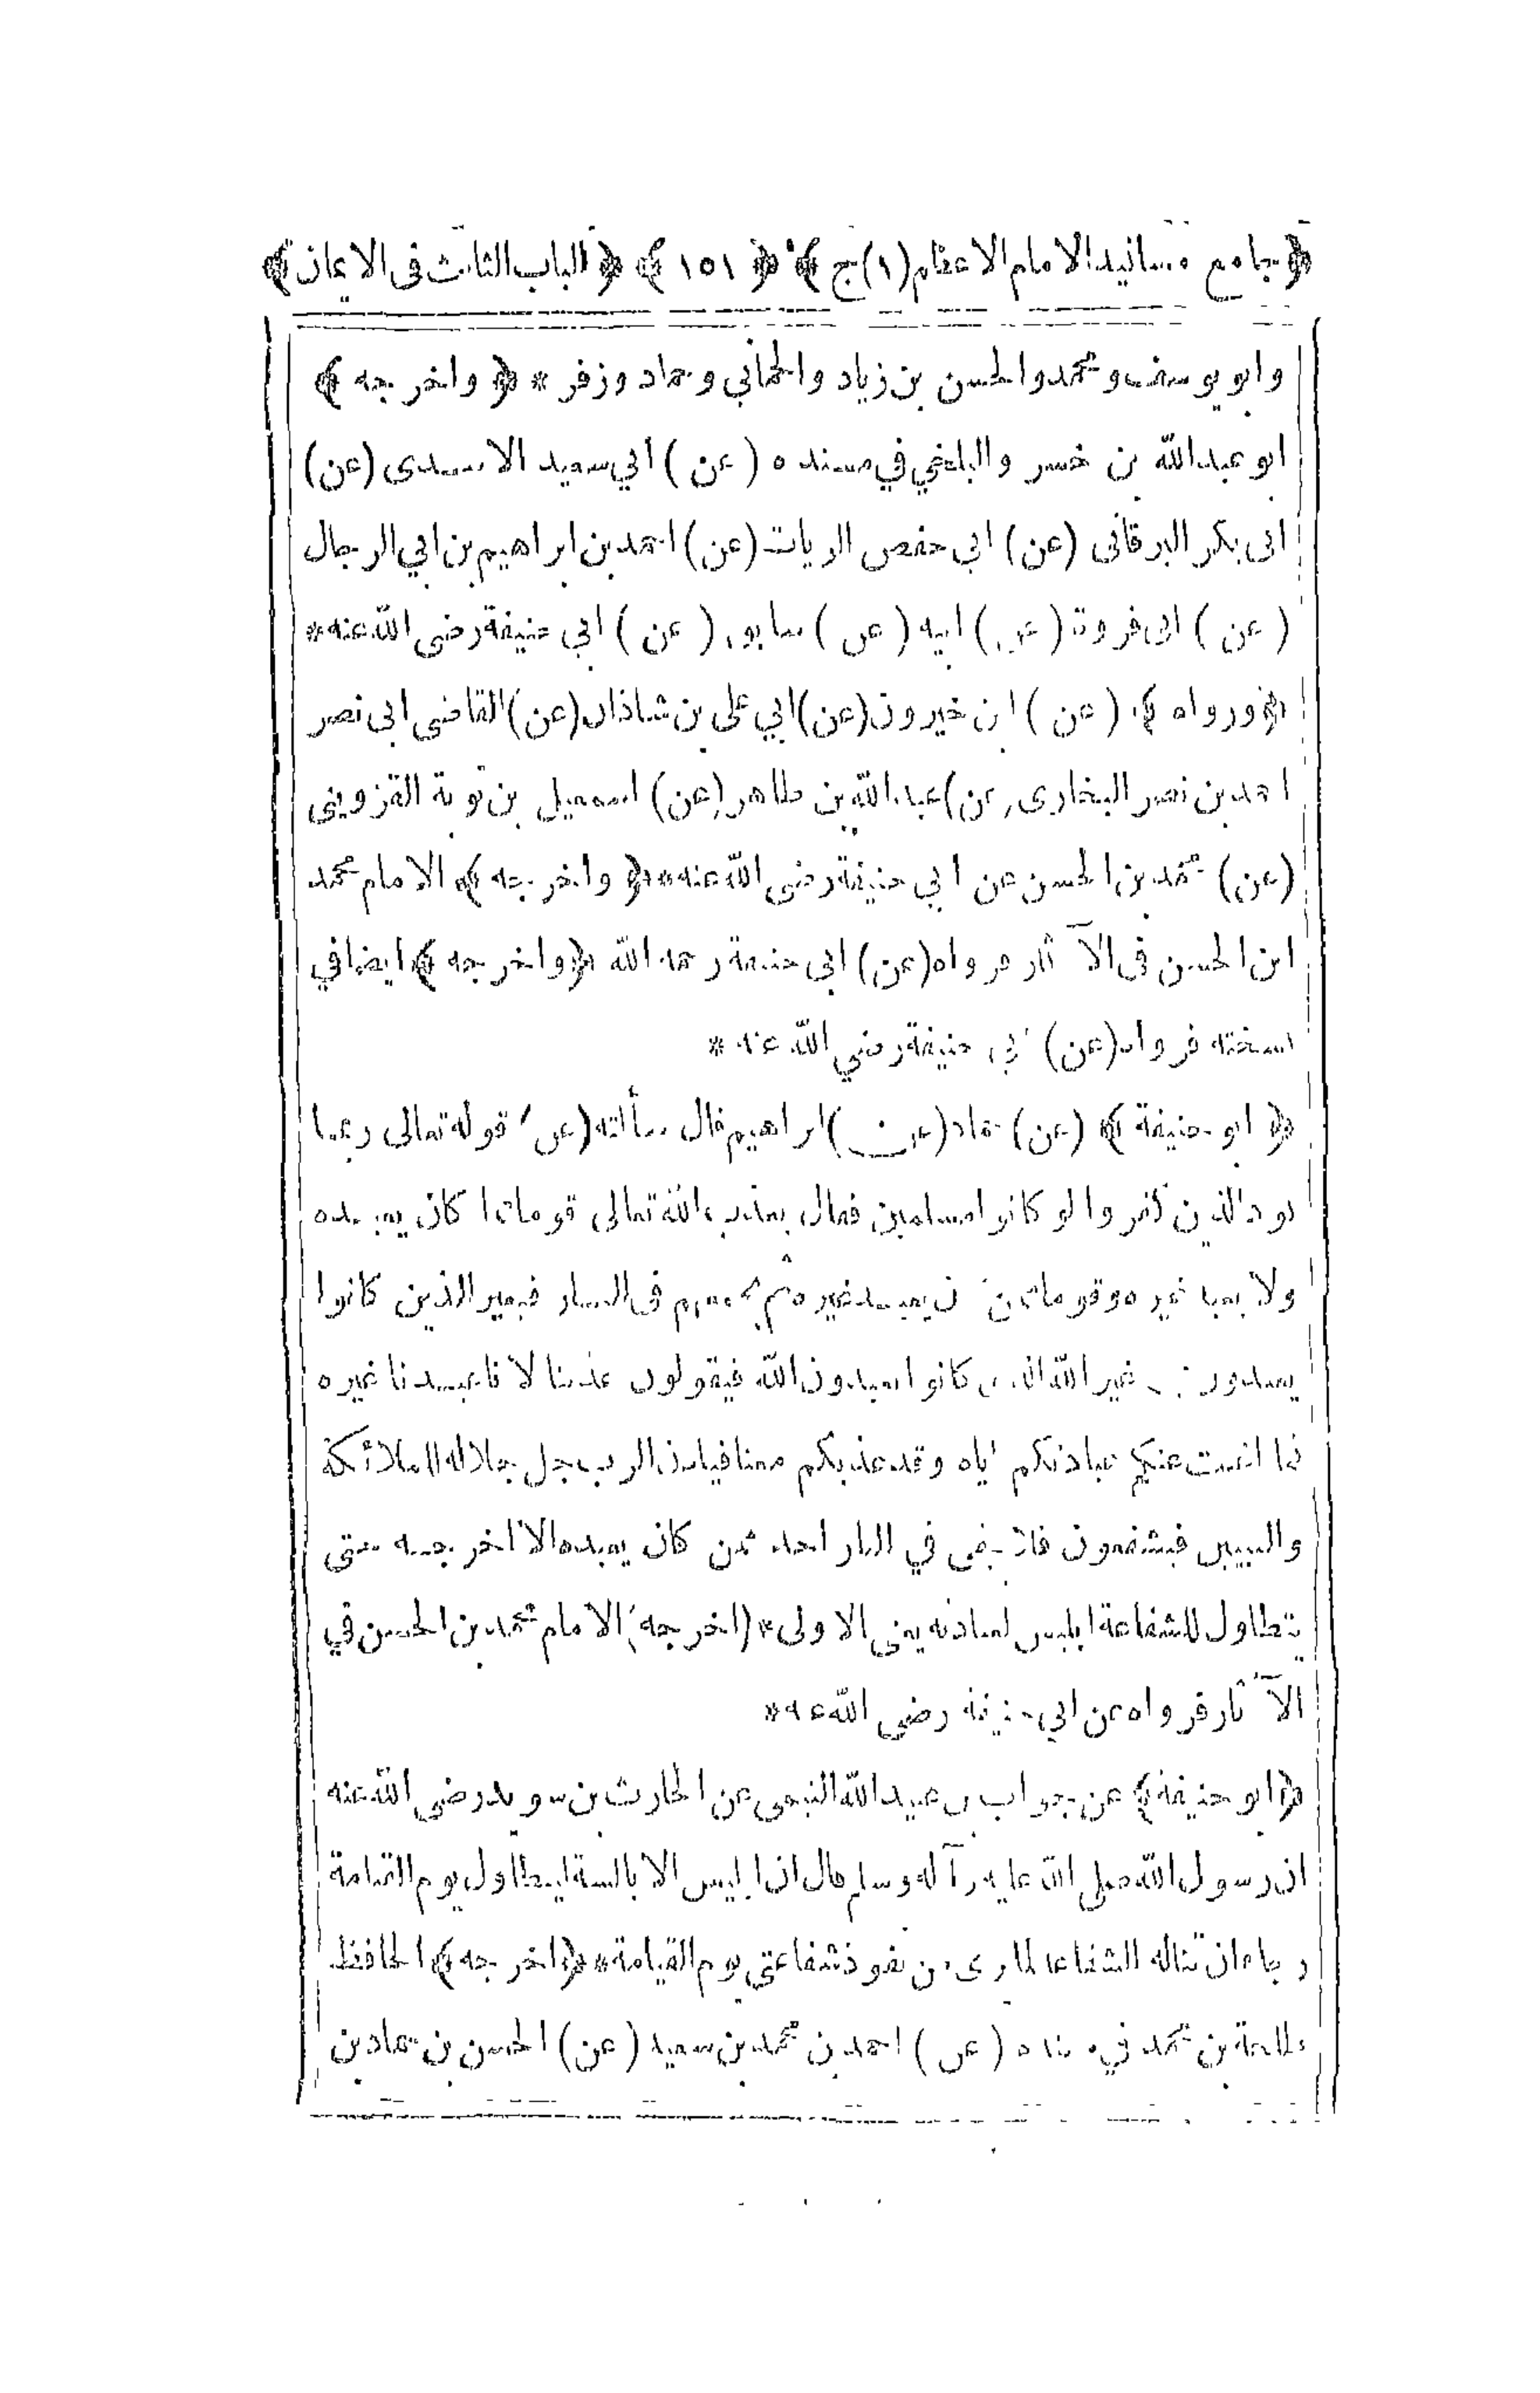 ﴿جامع مسانيد الامام الاعظم (١) ج﴾ ﴿١٥١﴾ ﴿الباب الثالث فى الايمان﴾
وابو يوسف ومحمد والحسن بن زياد والحمانى وحماد وزفر * ﴿واخرجه﴾
ابو عبدالله بن خسرو البلخي في مسنده (عن) ابي سعيد الاسدى (عن)
ابى بكر البرقانى (عن) ابى حفص الزيات (عن) احمد بن ابراهيم بن ابي الرجال
(عن) ابى فروة (عن) ابيه (عن) سابق (عن) ابي حنيفة رضى الله عنه *
﴿ورواه﴾ (عن) ابن خيرون (عن) ابي على بن شاذان (عن) القاضى ابى نصر
احمد بن نصر البخارى (عن) عبد الله بن طاهر (عن) اسمعيل بن توبة القزوينى
(عن) محمد بن الحسن عن ابي حنيفة رضى الله عنه * ﴿واخرجه﴾ الامام محمد
ابن الحسن فى الآثار فرواه (عن) ابى حنيفة رحمه الله ﴿واخرجه﴾ ايضا في
نسخته فرواه (عن) ابي حنيفة رضي الله عنه *
﴿ابو حنيفة﴾ (عن) حماد (عن) ابراهيم قال سألته (عن) قوله تعالى ربما
يود الذين كفروا لو كانوا مسلمين فقال يعذب الله تعالى قوما كان يعبده
ولا يعبد غيره وقوما يعبد غيره ثم يجمعهم فى النار فيعير الذين كانوا
يعبدون غير الله الذين كانوا يعبدون الله فيقولون عذبنا لانا عبدنا غيره
فما اغنت عنكم عبادتكم اياه وقد عذبكم معنا فياذن الرب جل جلاله الملائكة
والنبيين فيشفعون فلا يبقى في النار احد ممن كان يعبده الا اخرجه حتى
يتطاول للشفاعة ابليس لعبادته يعنى الاولى * (اخرجه) الامام محمد بن الحسن في
الآثار فرواه عن ابي حنيفة رضى الله عنه *
﴿ابو حنيفة﴾ عن جواب بن عبيد الله التيمى عن الحارث بن سويد رضى الله عنه
ان رسول الله صلى الله عليه وآله وسلم قال ان ابليس الابالسة ليتطاول يوم القيامة
رجاء ان تناله الشفاعة لما رى من نفوذ شفاعتى يوم القيامة * ﴿اخرجه﴾ الحافظ
طلحة بن محمد في مسنده (عن) احمد بن محمد بن سعيد (عن) الحسن بن حماد بن